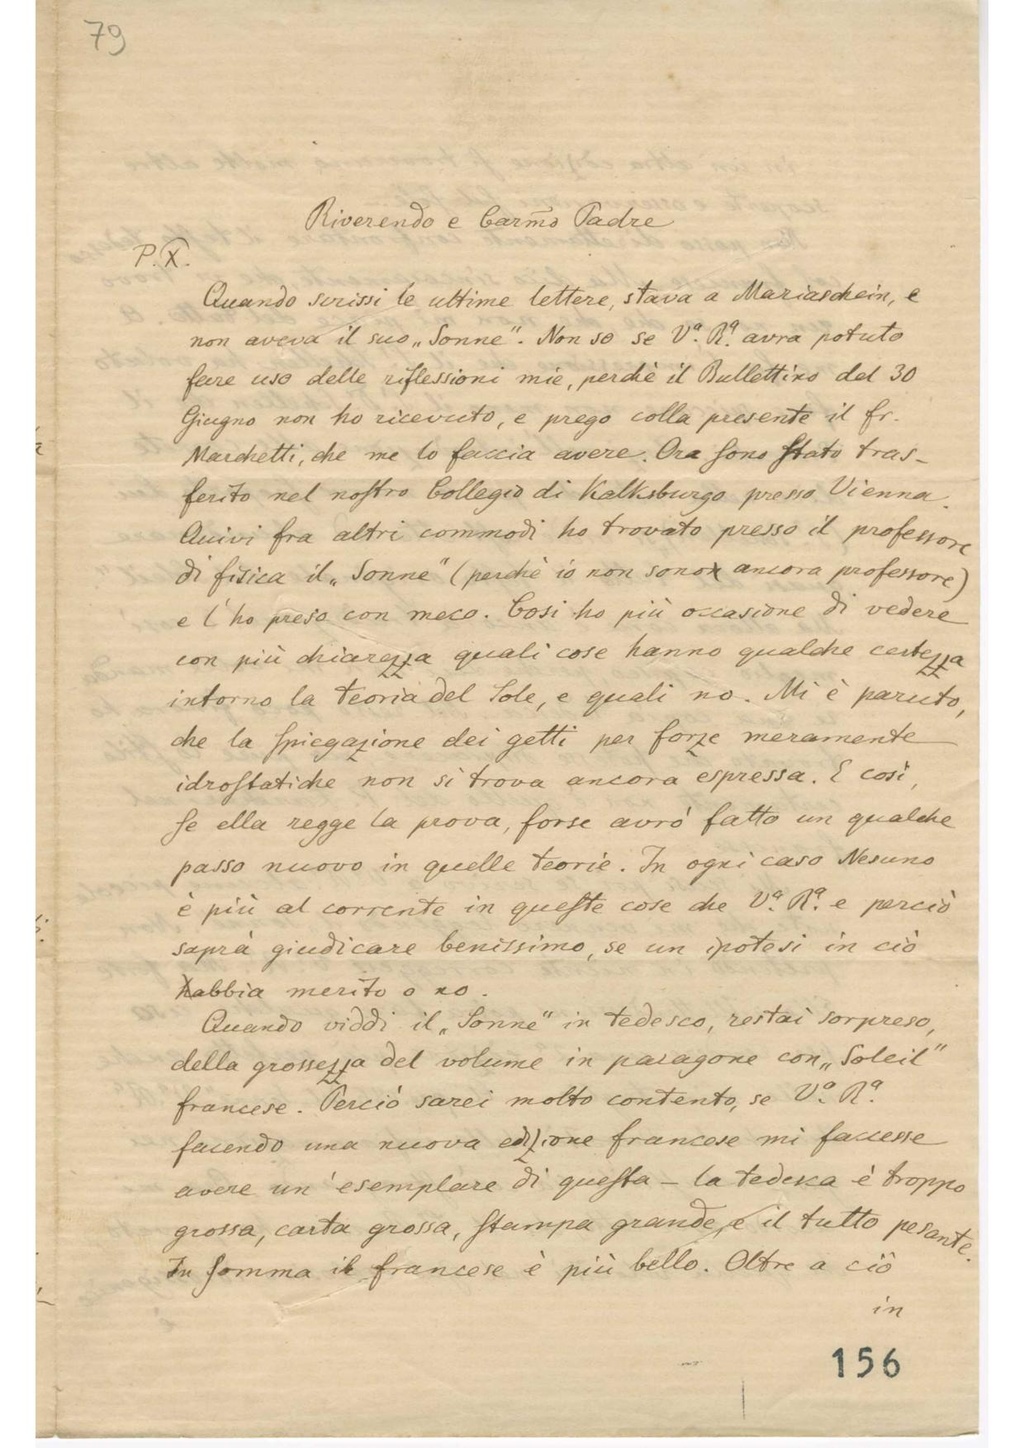 79
Riverendo e Carmo Padre
P. X.
Quando scrissi le ultime lettere, stava a Mariaschein, e
non aveva il suo „Sonne". Non so se Va. Ra. avra potuto
fare uso delle riflessioni mie, perchè il Bullettino del 30
Giugno non ho ricevuto, e prego colla presente il fr.
Marchetti, che me lo faccia avere. Ora sono stato tras-
ferito nel nostro Collegio di Kalksburgo presso Vienna.
Quivi fra altri commodi ho trovato presso il professore
di fisica il „Sonne" (perchè io non sono ancora professore)
e l'ho preso con meco. Cosi ho più occasione di vedere
con più chiarezza quali cose hanno qualche certezza
intorno la teoria del Sole, e quali no. Mi è paruto,
che la spiegazione dei getti per forze meramente
idrostatiche non si trova ancora espressa. E così,
se ella regge la prova, forse avrò fatto un qualche
passo nuovo in quelle teorie. In ogni caso Nesuno
è più al corrente in queste cose che Va. Ra. e perciò
saprà giudicare benissimo, se un ipotesi in ciò
abbia merito o no.
Quando viddi il „Sonne" in tedesco, restai sorpreso,
della grossezza del volume in paragone con „Soleil"
francese. Perciò sarei molto contento, se Va. Ra.
facendo una nuova edizione francese mi facesse
avere un'esemplare di questa – la tedesca è troppo
grossa, carta grossa, stampa grande, e il tutto pesante.
In somma il francese è più bello. Oltre a ciò
in
156